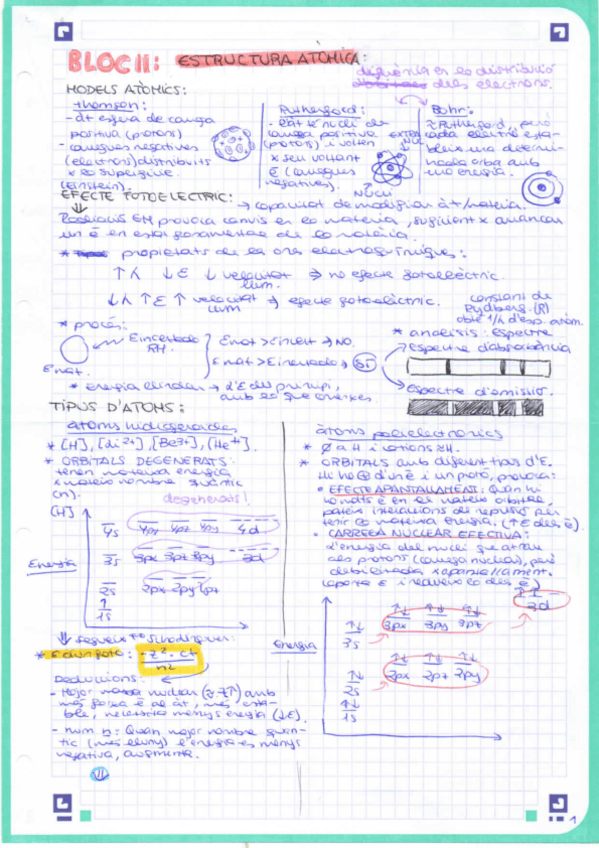 BLOC II: ESTRUCTURA ATÒMICA:
MODELS ATÒMICS:
diferència en la distribució
dels electrons.
Thomson:
- àt esfera de càrrega
positiva (protons)
- càrregues negatives
(electrons) distribuïts
x la superfície
(Einstein).
Rutherford:
- L'àt té nucli de
càrrega positiva
(protons), i volten
x seu voltant
ē (càrregues
negatives).
NUCLI
Bohr:
≈ Rutherford, però
cada electró esta-
bleix una determi-
nada òrbita amb
una energia.
EFECTE FOTOELÈCTRIC: → capacitat de modificar àt/matèria.
Radiació EM provoca canvis en la matèria, suficient x arrencar
un ē en estat fonamental de la matèria.
* propietats de les ones electromagnètiques:
↑λ ↓E ↓ velocitat llum ⇒ no efecte fotoelèctric.
↓λ ↑E ↑ velocitat llum ⇒ efecte fotoelèctric.
constant de
Rydberg (R)
* procés:
Eincident
Enat.
Enat > Eincident ⇒ NO.
Enat > Eincident ⇒ SÍ
* anàlisis: espectre
Espectre d'absorbància
Espectre d'emissió.
TIPUS D'ATOMS:
àtoms hidrogenoides
* [H], [Li2+], [Be3+], [He+].
* ORBITALS DEGENERATS:
tenen mateixa energia
x mateix nombre quàntic
(n).
degenerats!
[H]
4s 4px 4pz 4py 4d
3s 3px 3pz 3py 3d
2s 2px 2py 2pz
1s
Energia
⇓ segueix Schrödinger:
* E d'un àtom: -z² · ct / n²
Deduccions:
- Major nuclear (z, z↑) amb
més força ē al àt, més esta-
ble, necessita menys energia (↓E).
- num n: Quan major nombre quàn-
tic (més lluny) l'energia es menys
negativa, augmenta.
àtoms polielectrònics
* Ø a H i cations ≈H.
* ORBITALS amb diferent tipus d'E.
Hi ha @ d'un ē i un protó, provoca:
• EFECTE APANTALLAMENT: Quan hi
ha més ē en el mateix orbital,
pateix interaccions de repulsió per
tenir la mateixa energia. (↑E dels ē).
• CÀRREGA NUCLEAR EFECTIVA:
L'energia del nucli que atrau
als protons (càrrega nuclear), però
debilitada x apantallament.
3d
3s 3px 3py 3pz
2s 2px 2pz 2py
1s
Energia
1